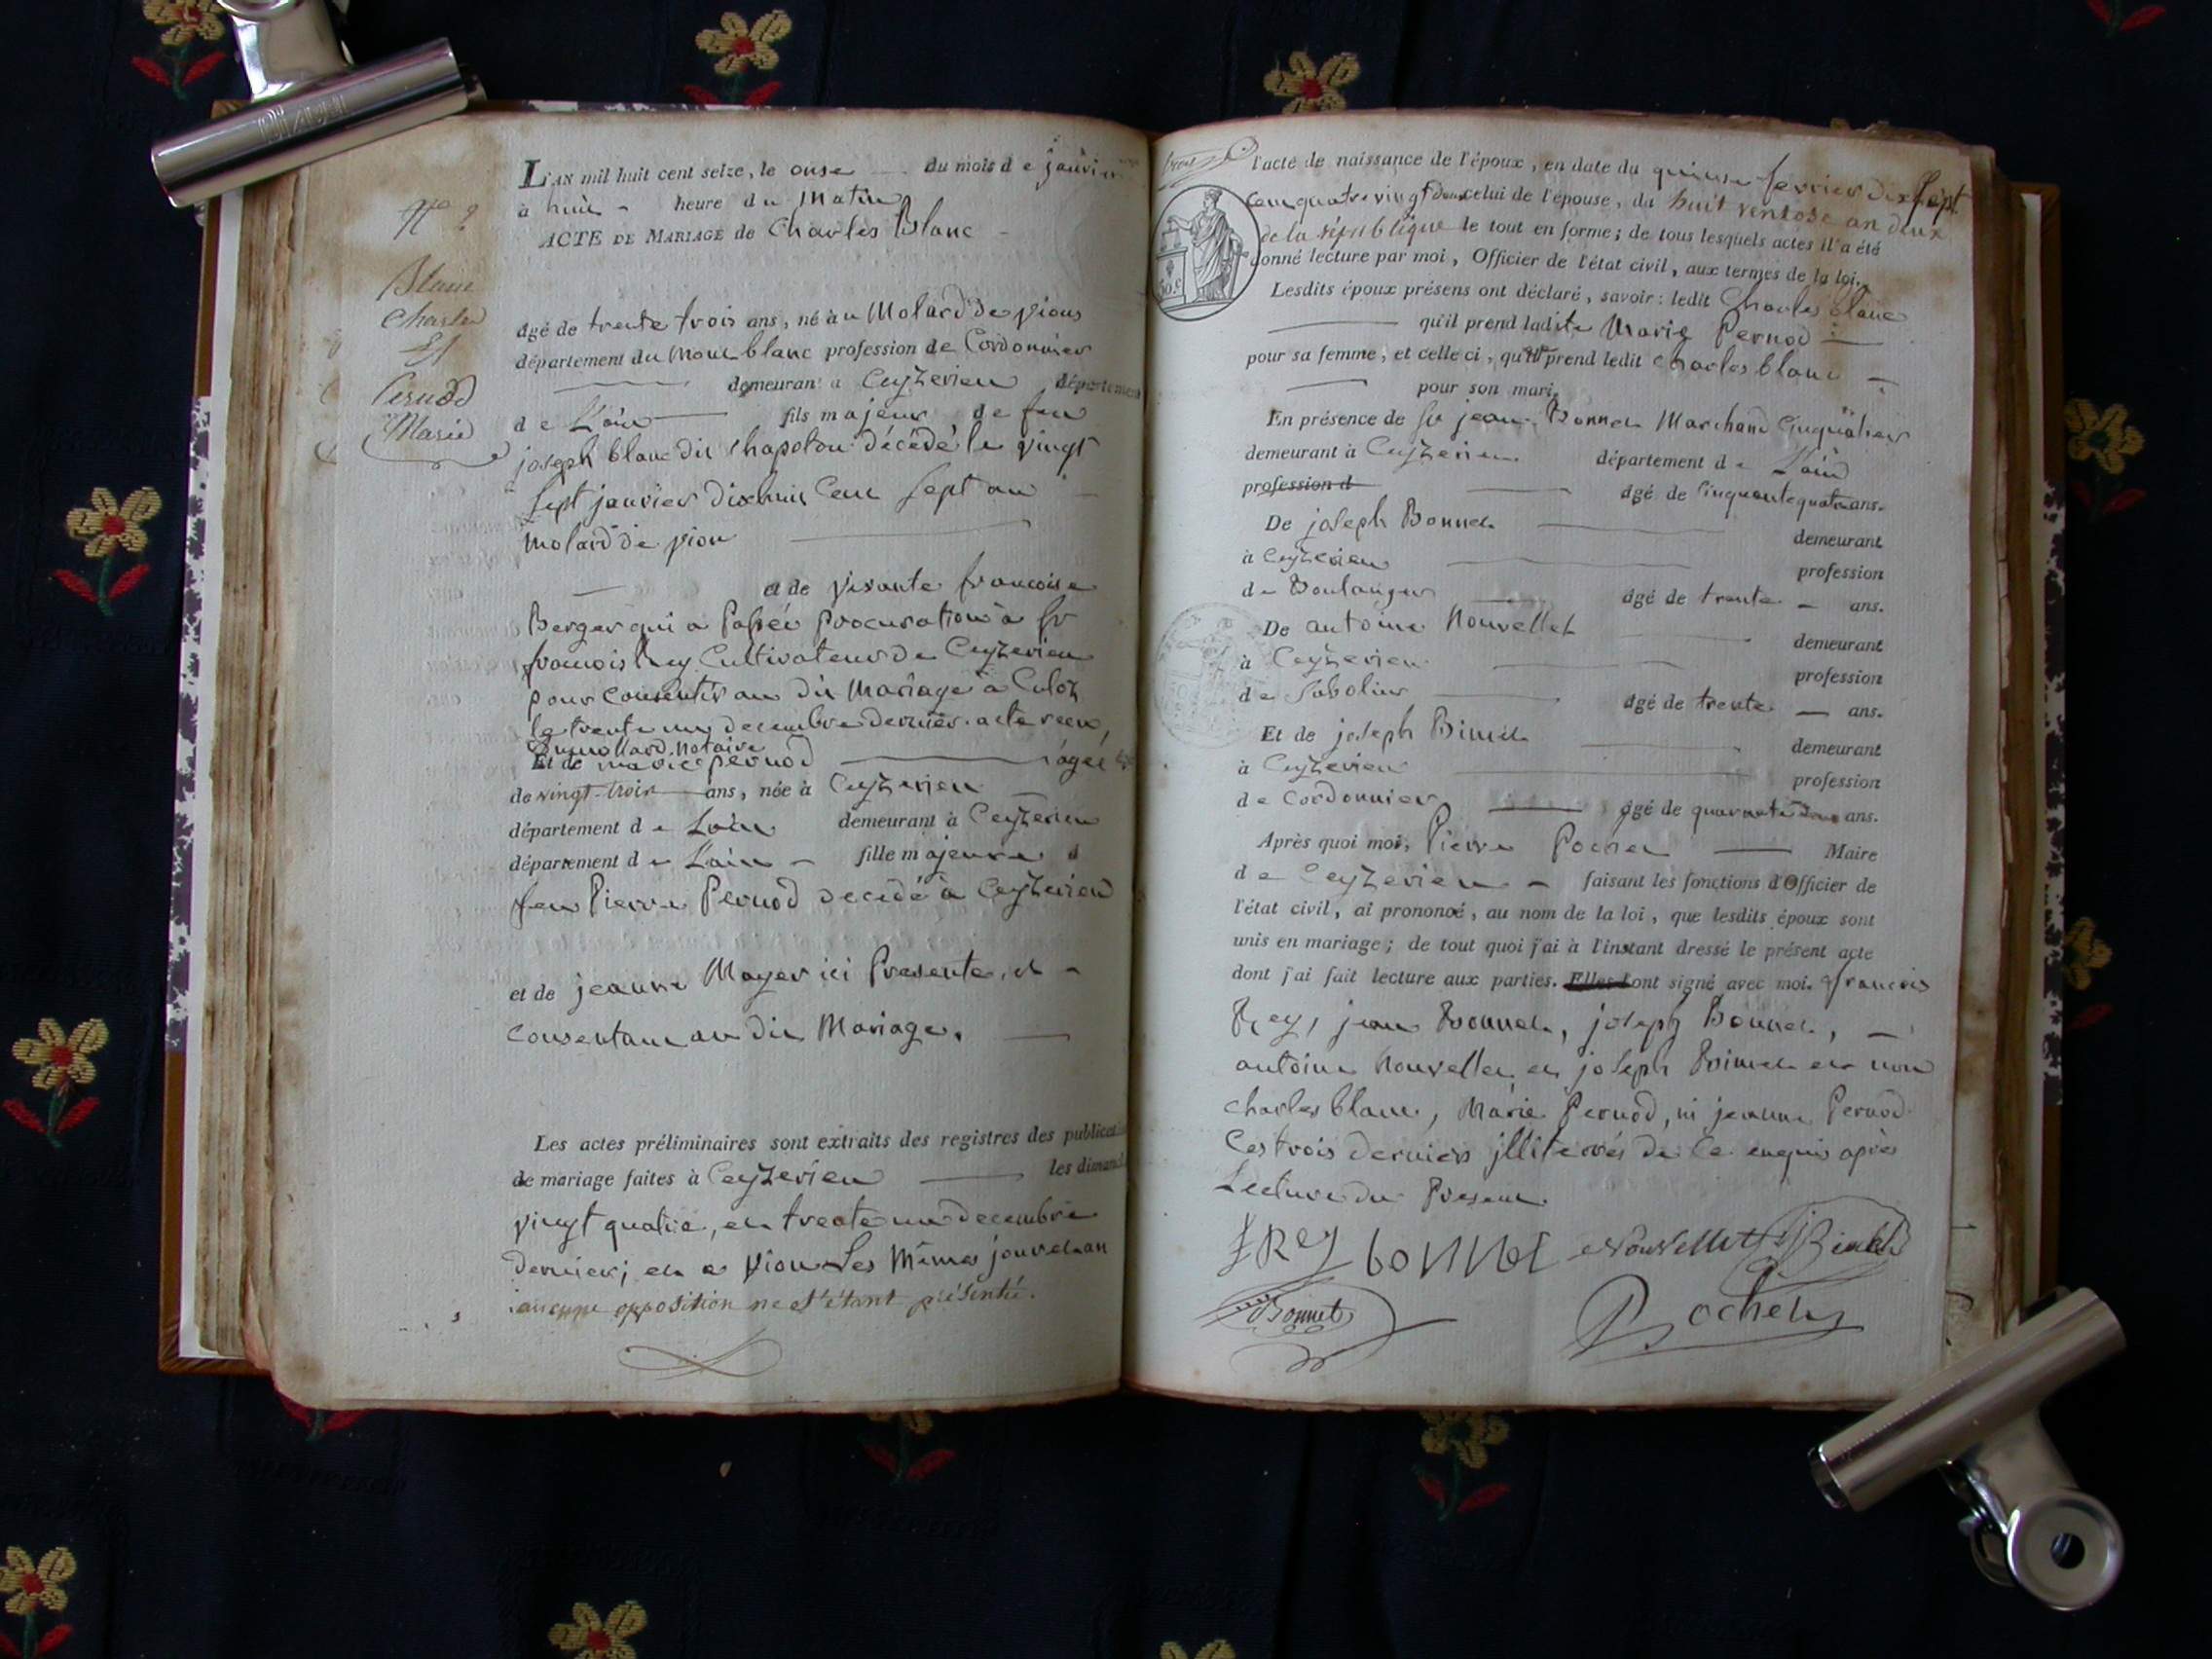 L'AN mil huit cent seize, le onse du mois de janvier
à huit heure du Matin
ACTE DE MARIAGE de Charles Blanc
N° 2
Blanc
Charles
Et
Pernod
Marie
âgé de trente trois ans, né au Molard de vions
département du Mont blanc profession de Cordonnier
demeurant à Ceyzerieu département
de L'ain fils majeur de feu
joseph blanc dit Chapolon décédé le vingt
sept janvier dixhuit Cent sept au
Molard de vion
et de vivante francoise
Berger qui a Passée Procuration à Sr
francois Rey Cultivateur de Ceyzerieu
pour Consentir au dit Mariage à Culoz
le trente un decembre dernier. acte recu,
notaire
Et de marie pernod âgée
de vingt-trois ans, née à Ceyzerieu
département de L'ain demeurant à Ceyzerieu
département de L'ain fille majeure d
feu Pierre Pernod decédé à Ceyzerieu
et de jeanne Moyer ici Presente, et
Consentant au dit Mariage.
Les actes préliminaires sont extraits des registres des publicat
de mariage faites à Ceyzerieu les dimanc
vingt quatre, et trente un decembre
dernier; et a Vion Les Mêmes jour et an
aucune opposition ne s'étant présenté.
l'acte de naissance de l'époux, en date du quinse fevrier dix sept
Cent quatre vingt deux celui de l'épouse, du huit ventose an deux
de la république le tout en forme; de tous lesquels actes il a été
donné lecture par moi, Officier de l'état civil, aux termes de la loi.
30.c
Lesdits époux présens ont déclaré, savoir: ledit Charles blanc
qu'il prend ladite Marie Pernod
pour sa femme, et celle ci, qu'elle prend ledit Charles blanc
pour son mari.
En présence de Sr jean Bonnet Marchand
demeurant à Ceyzerieu département de L'ain
profession d âgé de Cinquante quatre ans.
De joseph Bonnet demeurant
à Ceyzerieu profession
de Boulanger âgé de trente ans.
De antoine Nouvellet demeurant
à Ceyzerieu profession
de Sabotier âgé de trente ans.
Et de joseph Bimet demeurant
à Ceyzerieu profession
de Cordonnier âgé de quarante deux ans.
Après quoi moi, Pierre Pochet Maire
de Ceyzerieu faisant les fonctions d'Officier de
l'état civil, ai prononcé, au nom de la loi, que lesdits époux sont
unis en mariage; de tout quoi j'ai à l'instant dressé le présent acte
dont j'ai fait lecture aux parties. Elles ont signé avec moi. francois
Rey, jean Bonnet, joseph Bonnet,
antoine Nouvellet et joseph Bimet et non
charles blanc, Marie Pernod, ni jeanne Pernod
Ces trois derniers jlliterés de Ce enquis après
Lecture du Present
f REY bonnet Nouvellet J Bimet
Bonnet Pochet